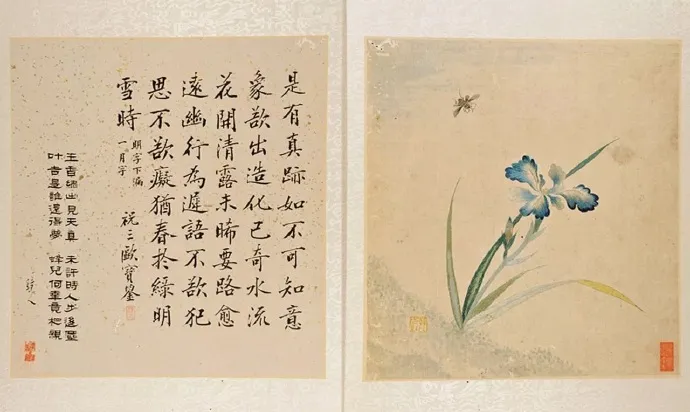 是有真跡如不可知意
象欲出造化已奇水流
花開清露未晞要路愈
遠幽行為遲語不欲犯
思不欲癡猶春於綠明
雪時
明字下漏
一月字
祝三歐寶鋆
出見天真 未許時人步後塵
是誰 夢 蜂兒何事竟相親